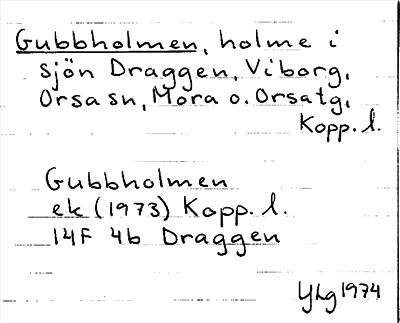 Gubbholmen, holme i
sjön Draggen, Viborg,
Orsa sn, Mora o. Orsatg,
Kopp. l.
Gubbholmen
ek (1973) Kopp. l.
14F 4b Draggen
YLg 1974